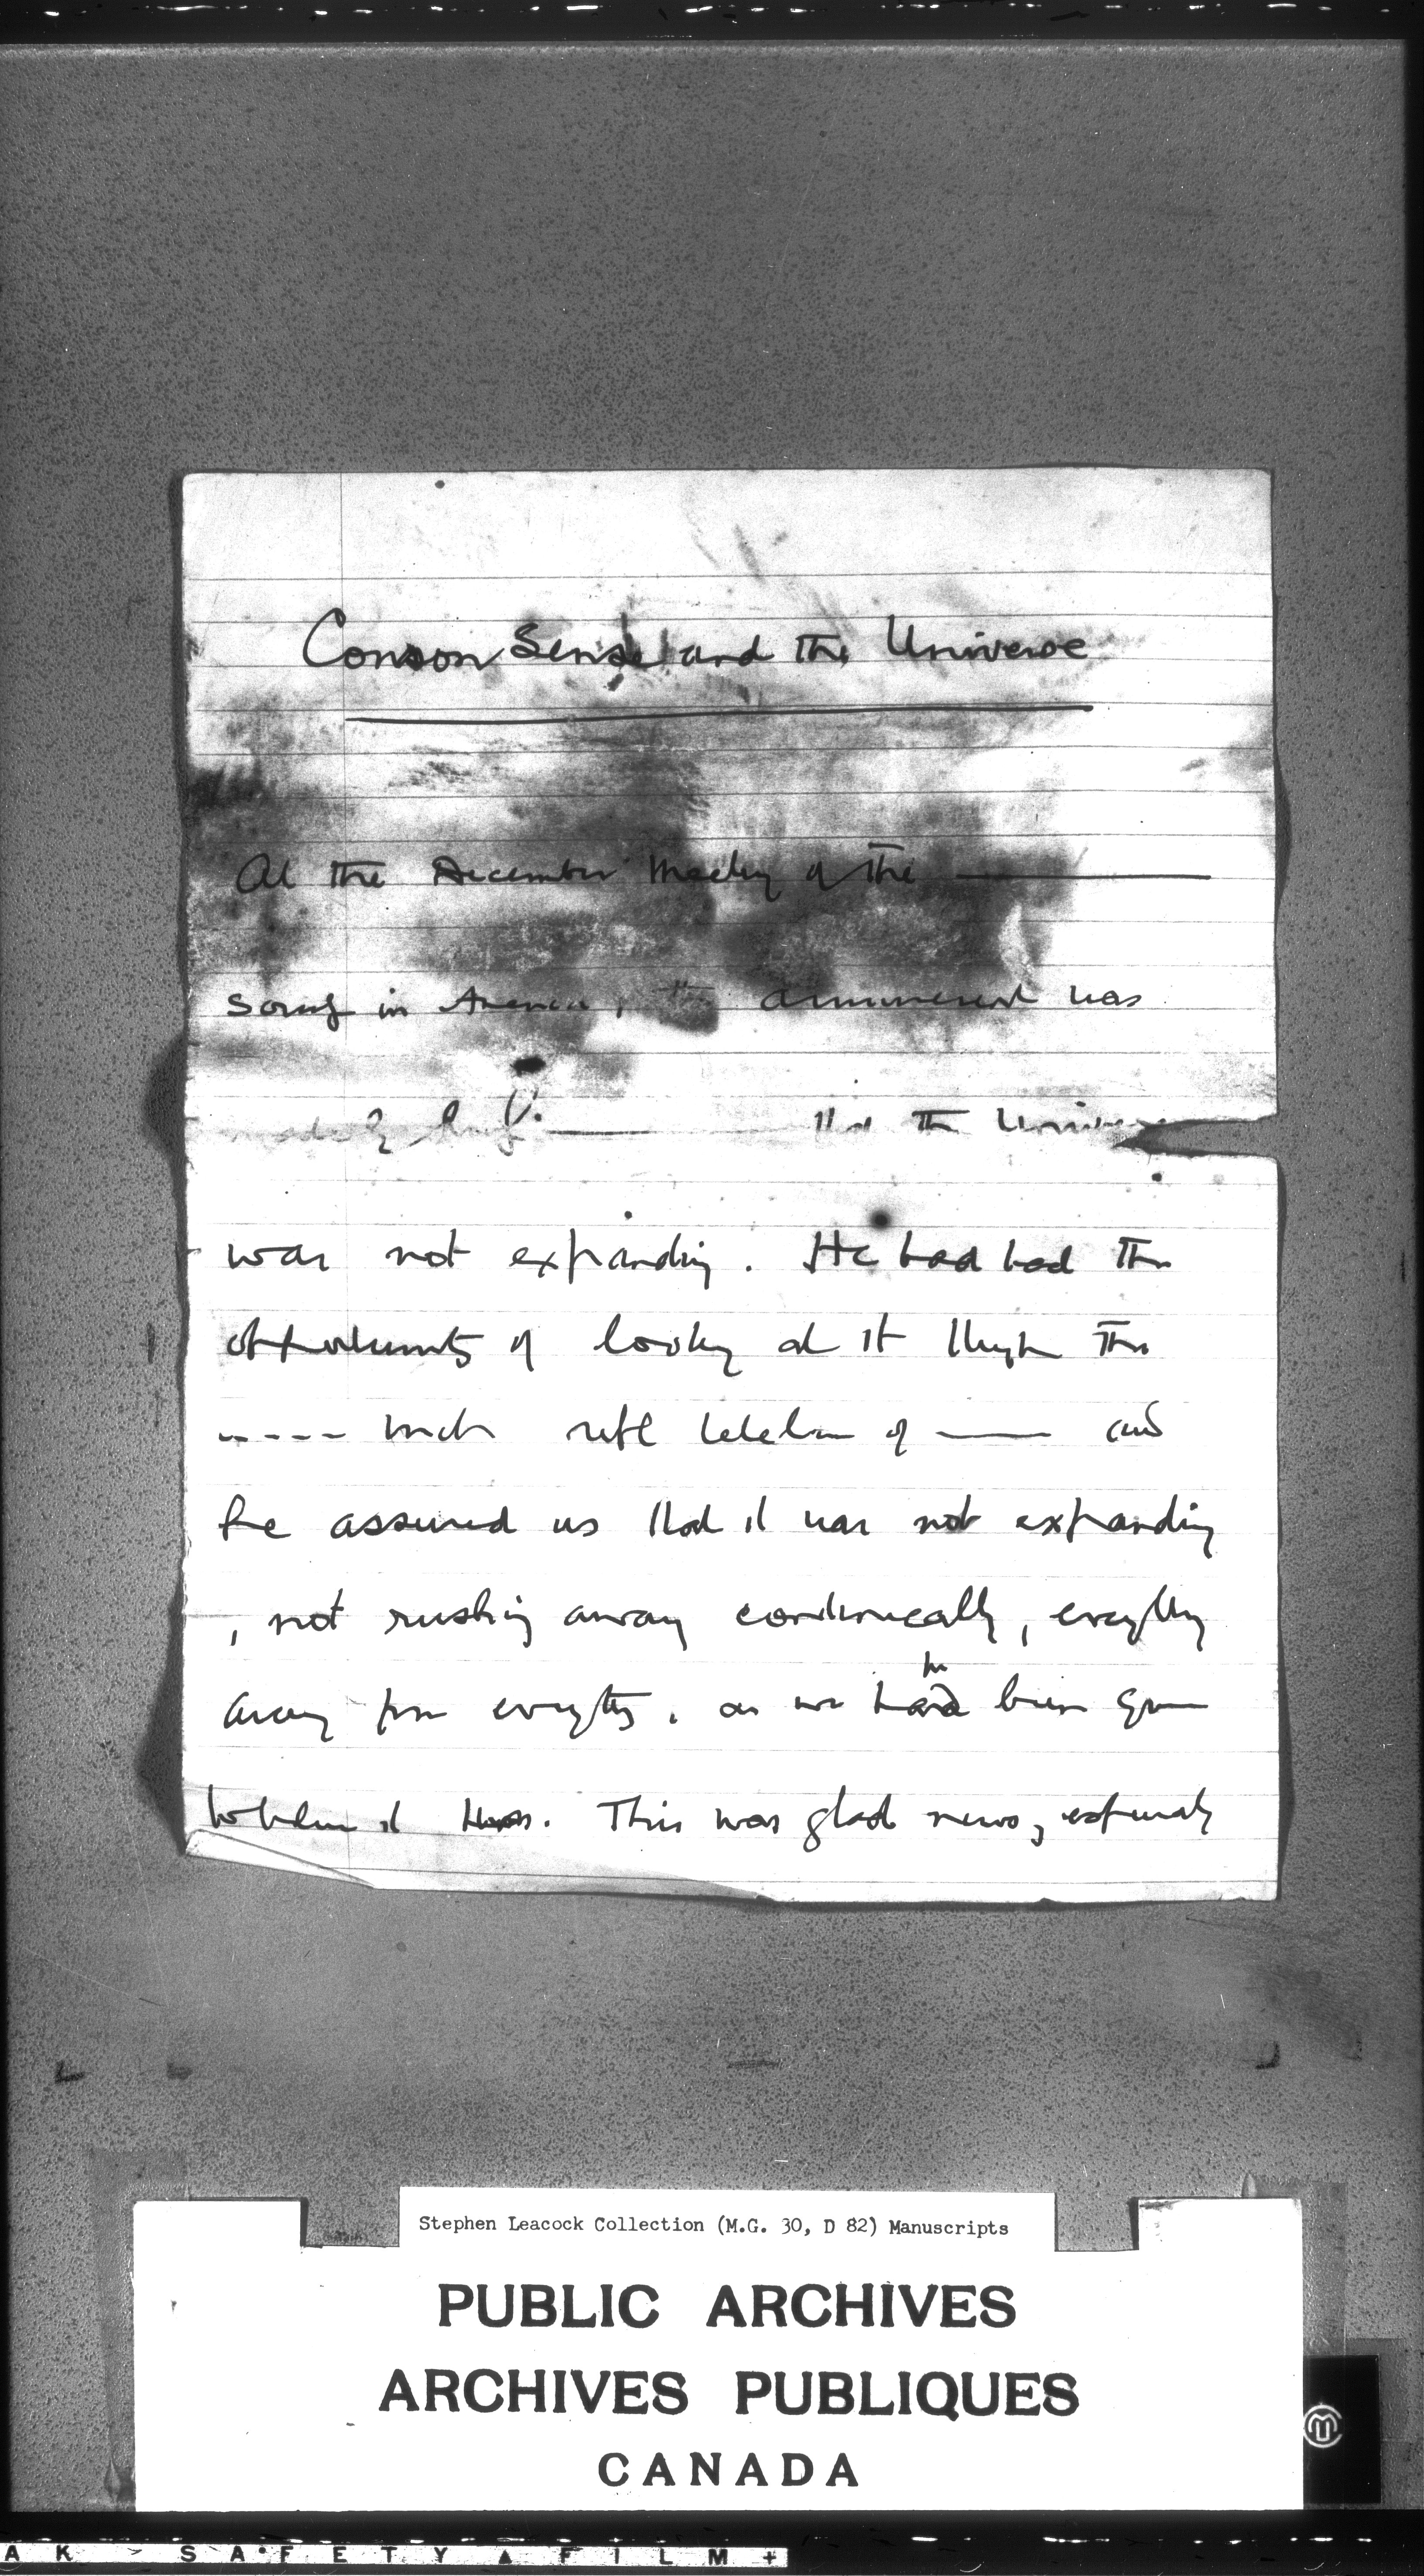 Common Sense and the Universe
At the December meeting of the ———
Society in America, the announcement was
made by Prof. ——— that the Universe
was not expanding. He had had the
opportunity of looking at it through the
----- inch refl telescope of ——— and
he assured us that it was not expanding
, not rushing away continually, everything
away from everything, as we had been given
to believe it was. This was glad news, especially
Stephen Leacock Collection (M.G. 30, D 82) Manuscripts
PUBLIC ARCHIVES
ARCHIVES PUBLIQUES
CANADA
AK SAFETY FILM